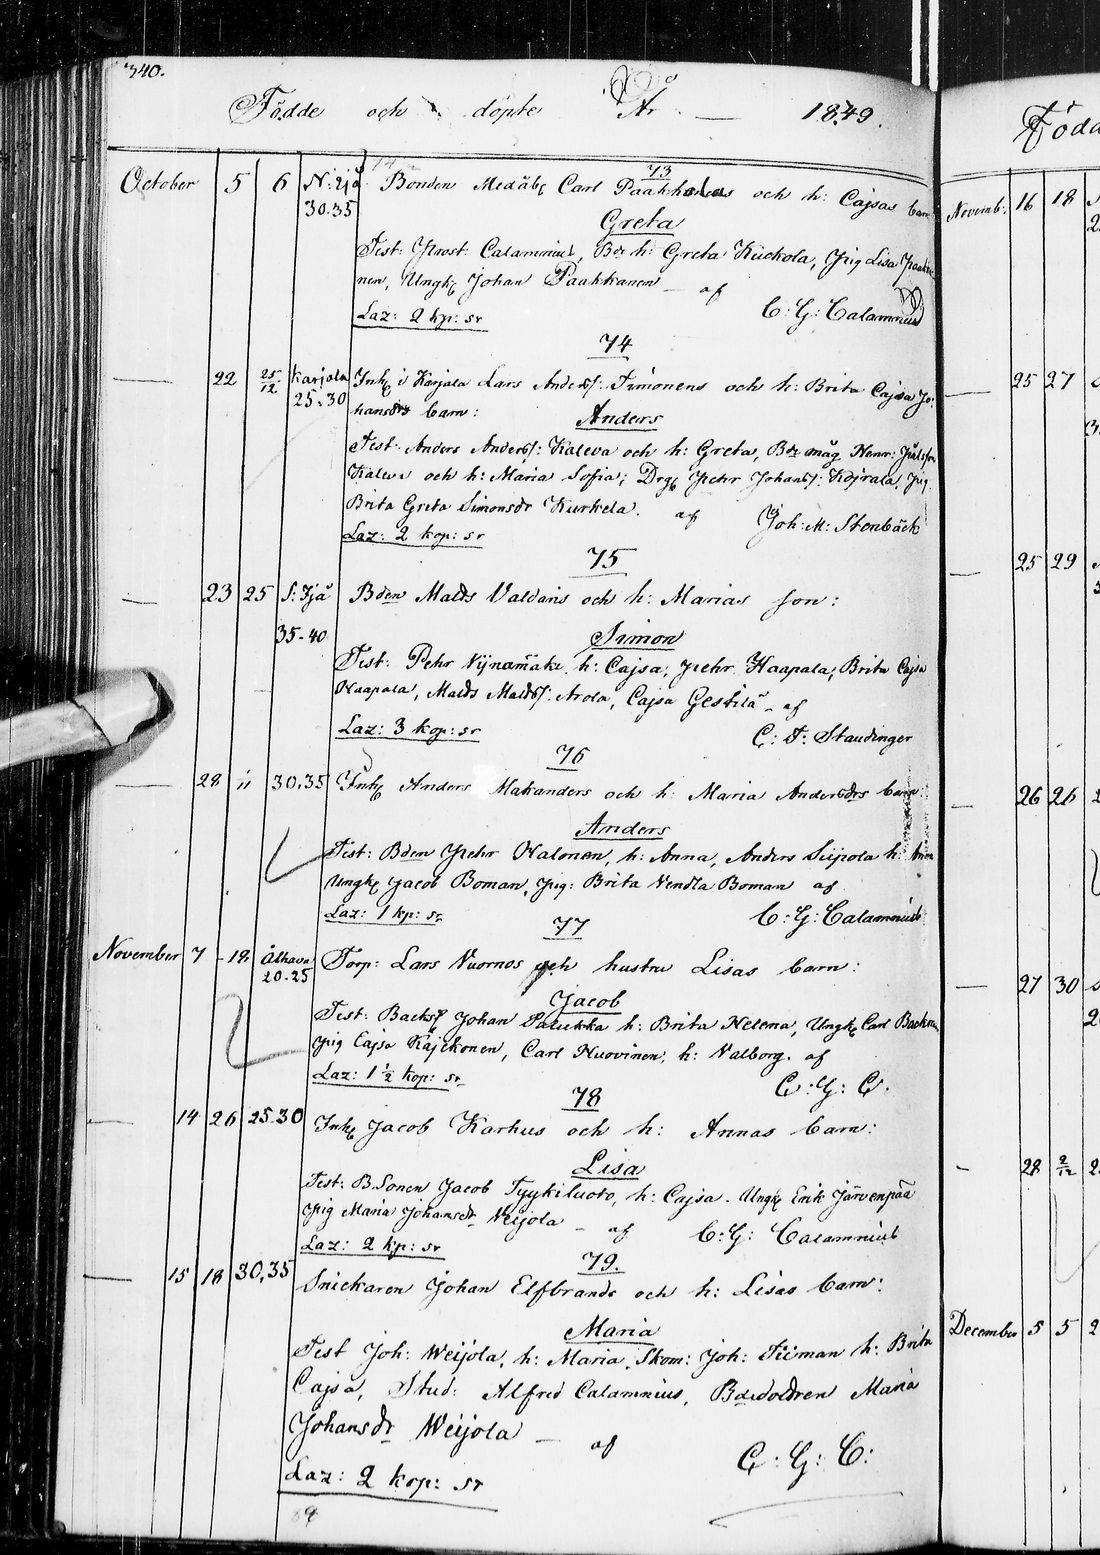 340.
Födde och döpte År — 1849.
73
October 5 6 N: Ijå Bonden Carl och h: Cajsas barn
30.35
Greta
Test: Prost: Calamnius, h: Greta Kuckola, Pig Lisa
nen, Ungk Johan Paakkanen — af
Laz: 2 kp: sr C: G: Calamnius
74
— 22 25/12 Karjala Inh i Karjala Lars Andersf: Simonens och h: Brita Cajsa Jo:
25.30 hansdrs barn:
Anders
Test: Anders Andersf: Kaleva och h: Greta, måg
och h: Maria Sofia; Drg Pehr Johansf: Pig
Brita Greta Simonsdr Kurkela. af Joh: M: Stenbäck
Laz: 2 kop: sr
75
— 23 25 S: Ijå Bden Matts Valdaris och h: Marias son:
35-40
Simon
Test: Pehr h: Cajsa, Pehr Haapala, Brita Cajsa
Haapala, Matts Mattsf: Arola, Cajsa Gestilä — af
Laz: 3 kop: sr C: F: Staudinger
76
— 28 11 30.35 Inh Anders Makanders och h: Maria Andersdrs barn:
Anders
Test: Bden Pehr Halonen, h: Anna, Anders Siipola h:
Ungk Jacob Boman, Pig: Brita Vendla Boman af
Laz: 1 kp: sr C: G: Calamnius
77
November 7 18 Ålhava Torp: Lars Vuornos och hustru Lisas barn:
20.25
Jacob
Test: Johan Palukka h: Brita Helena, Ungk Carl
Pig Cajsa Käjekonen, Carl Huovinen, h: Valborg. af
Laz: 1 1/2 kop: sr C: G: C.
78
— 14 26 25.30 Inh Jacob Karhus och h: Annas barn:
Lisa
Test: B.Sonen Jacob Tyykiluoto, h: Cajsa. Ungk Erik Järvenpää
Pig Maria Johansdr Veijola — af C: G: Calamnius
Laz: 2 kp: sr
79.
— 15 18 30,35 Snickaren Johan Elfbrands och h: Lisas barn:
Maria
Test Joh: Weijola, h: Maria, Skom: Joh: Tiiman h: Brita
Cajsa, Stud: Alfred Calamnius, Maria
Johansdr Weijola — af C: G: C:
Laz: 2 kop: sr
Född
Novemb: 16 18
— 25 27
— 25 29
— 26 26
— 27 30
— 28 2/12
December 5 5